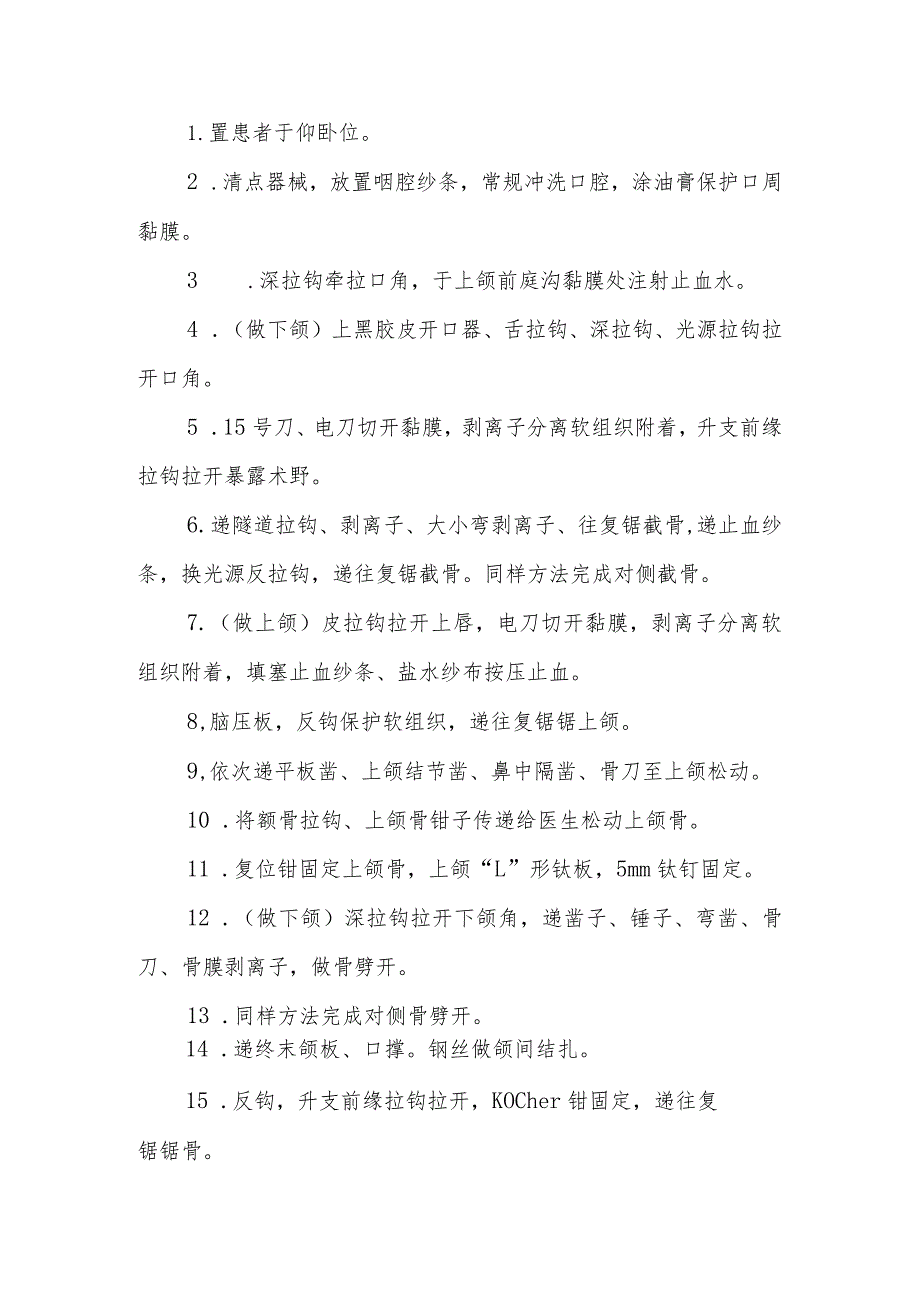 1.置患者于仰卧位。
2 .清点器械，放置咽腔纱条，常规冲洗口腔，涂油膏保护口周
黏膜。
3 .深拉钩牵拉口角，于上颌前庭沟黏膜处注射止血水。
4 .（做下颌）上黑胶皮开口器、舌拉钩、深拉钩、光源拉钩拉
开口角。
5 .15号刀、电刀切开黏膜，剥离子分离软组织附着，升支前缘
拉钩拉开暴露术野。
6.递隧道拉钩、剥离子、大小弯剥离子、往复锯截骨,递止血纱
条，换光源反拉钩，递往复锯截骨。同样方法完成对侧截骨。
7.（做上颌）皮拉钩拉开上唇，电刀切开黏膜，剥离子分离软
组织附着，填塞止血纱条、盐水纱布按压止血。
8,脑压板，反钩保护软组织，递往复锯锯上颌。
9,依次递平板凿、上颌结节凿、鼻中隔凿、骨刀至上颌松动。
10 .将额骨拉钩、上颌骨钳子传递给医生松动上颌骨。
11 .复位钳固定上颌骨，上颌“L”形钛板，5mm钛钉固定。
12 .（做下颌）深拉钩拉开下颌角，递凿子、锤子、弯凿、骨
刀、骨膜剥离子，做骨劈开。
13 .同样方法完成对侧骨劈开。
14 .递终末颌板、口撑。钢丝做颌间结扎。
15 .反钩，升支前缘拉钩拉开，KOCher钳固定，递往复
锯锯骨。